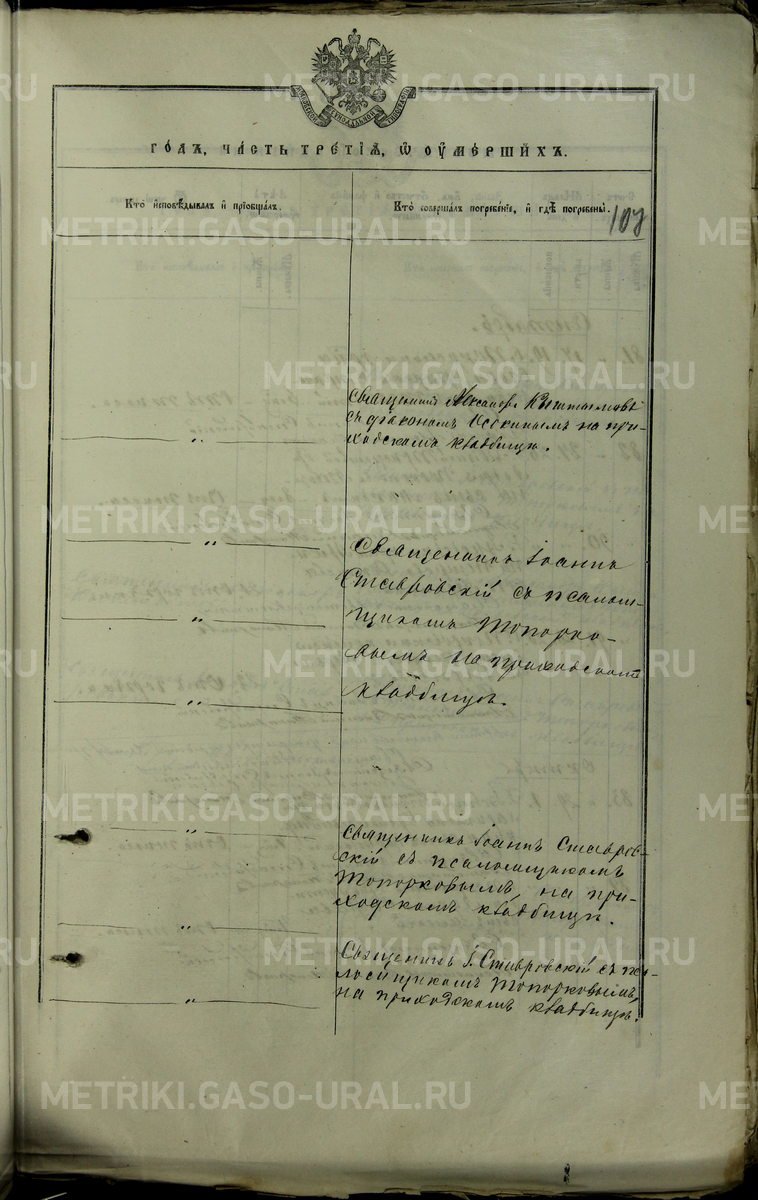 годъ, часть третія, ѡ оумершихъ.
Кто исповѣдывалъ и пріобщалъ.
Кто совершалъ погребеніе, и гдѣ погребены.
107
Священникъ Александръ
съ діакономъ Осокинымъ на при-
ходскомъ кладбищѣ.
Священникъ Іоаннъ
Ставровскій съ псалом-
щикомъ Топорко-
вымъ на приходскомъ
кладбищѣ.
Священникъ Іоаннъ Ставров-
скій съ псаломщикомъ
Топорковымъ, на при-
ходскомъ кладбищѣ.
Священникъ І. Ставровскій съ пса-
ломщикомъ Топорковымъ,
на приходскомъ кладбищѣ.
METRIKI.GASO-URAL.RU